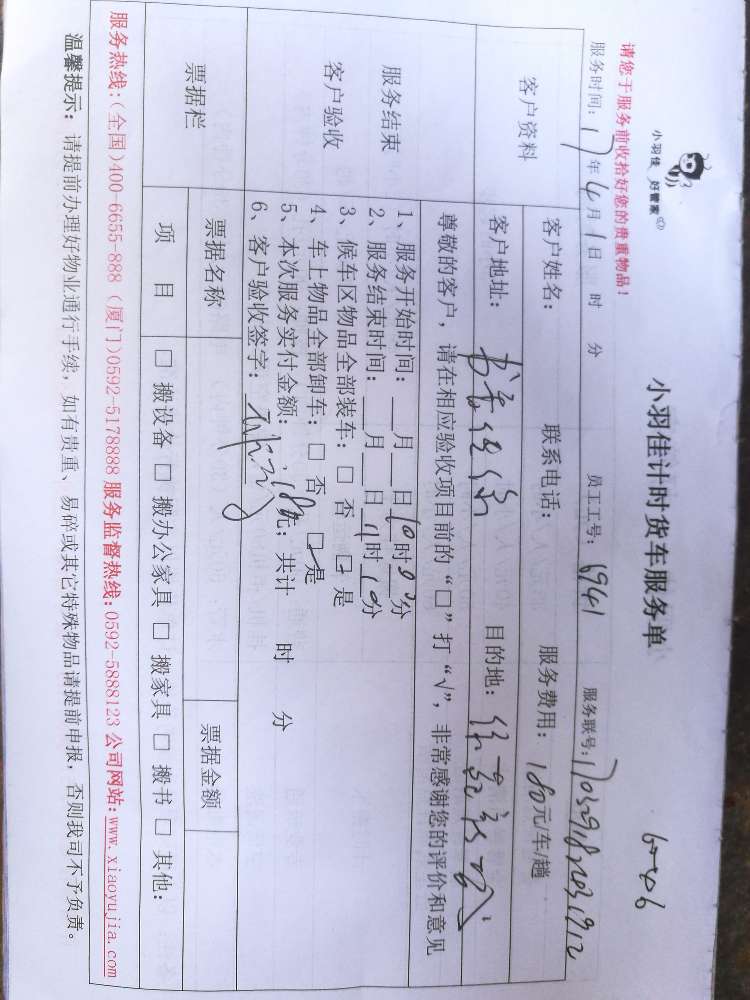 小羽佳 好管家
小羽佳计时货车服务单
请您于服务前收拾好您的贵重物品！
服务时间：17年4月1日 时 分 员工工号：6941 服务联号：
客户资料
客户姓名： 联系电话： 服务费用：180元/车/趟
客户地址： 目的地：
尊敬的客户，请在相应验收项目前的“□”打“√”，非常感谢您的评价和意见
服务结束
客户验收
1、服务开始时间：__月__日10时00分
2、服务结束时间：__月__日11时10分
3、候车区物品全部装车：□ 否 □ 是
4、车上物品全部卸车：□ 否 □ 是
5、本次服务实付金额：180元；共计 时 分
6、客户验收签字：
票据栏
票据名称 票据金额
项 目 □ 搬设备 □ 搬办公家具 □ 搬家具 □ 搬书 □ 其他：
服务热线：(全国)400-6655-888 (厦门)0592-5178888 服务监督热线：0592-5888123 公司网站：www.xiaoyujia.com
温馨提示：请提前办理好物业通行手续，如有贵重、易碎或其它特殊物品请提前申报，否则我司不予负责。